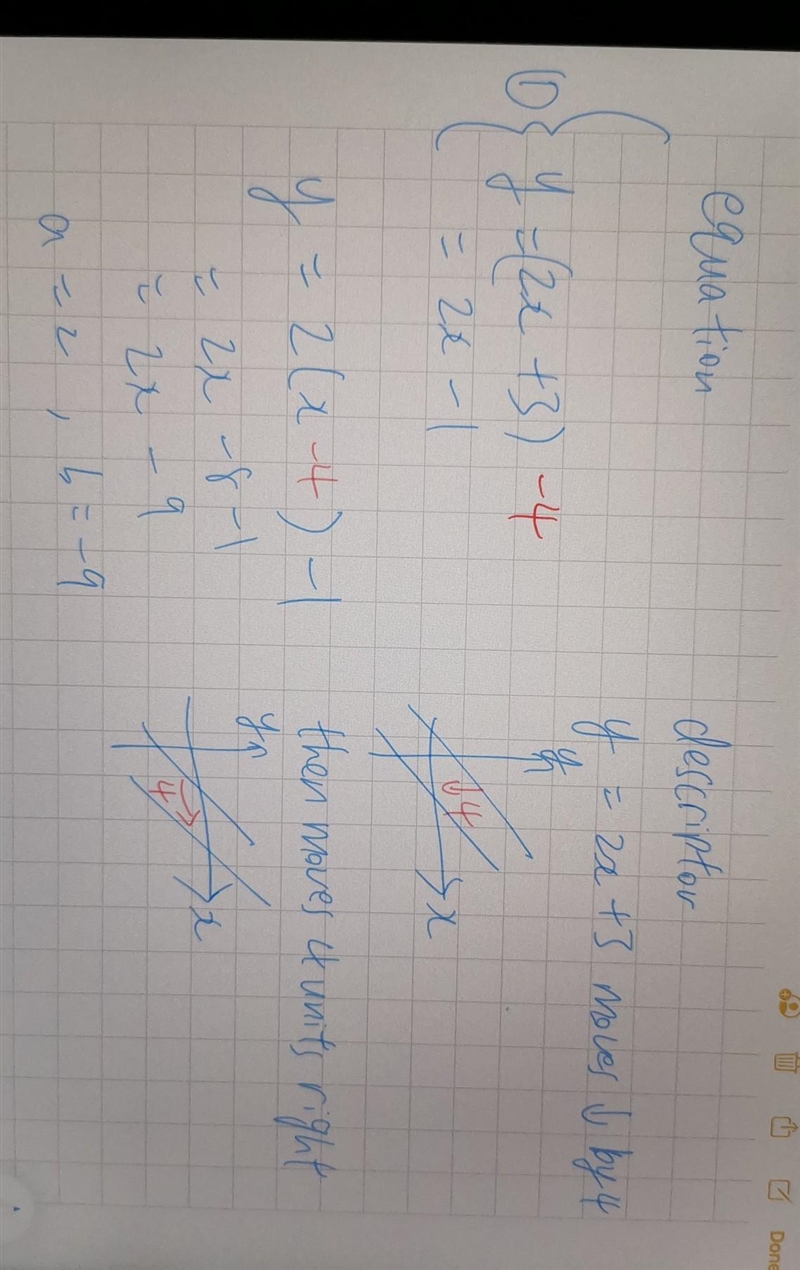 Done
equation
descriptor
① y = (2x + 3) - 4
= 2x - 1
y = 2x + 3 moves ↓ by 4
y
↓ 4
x
y = 2(x - 4) - 1
= 2x - 8 - 1
= 2x - 9
a = 2, b = -9
then moves 4 units right
y
4 →
x